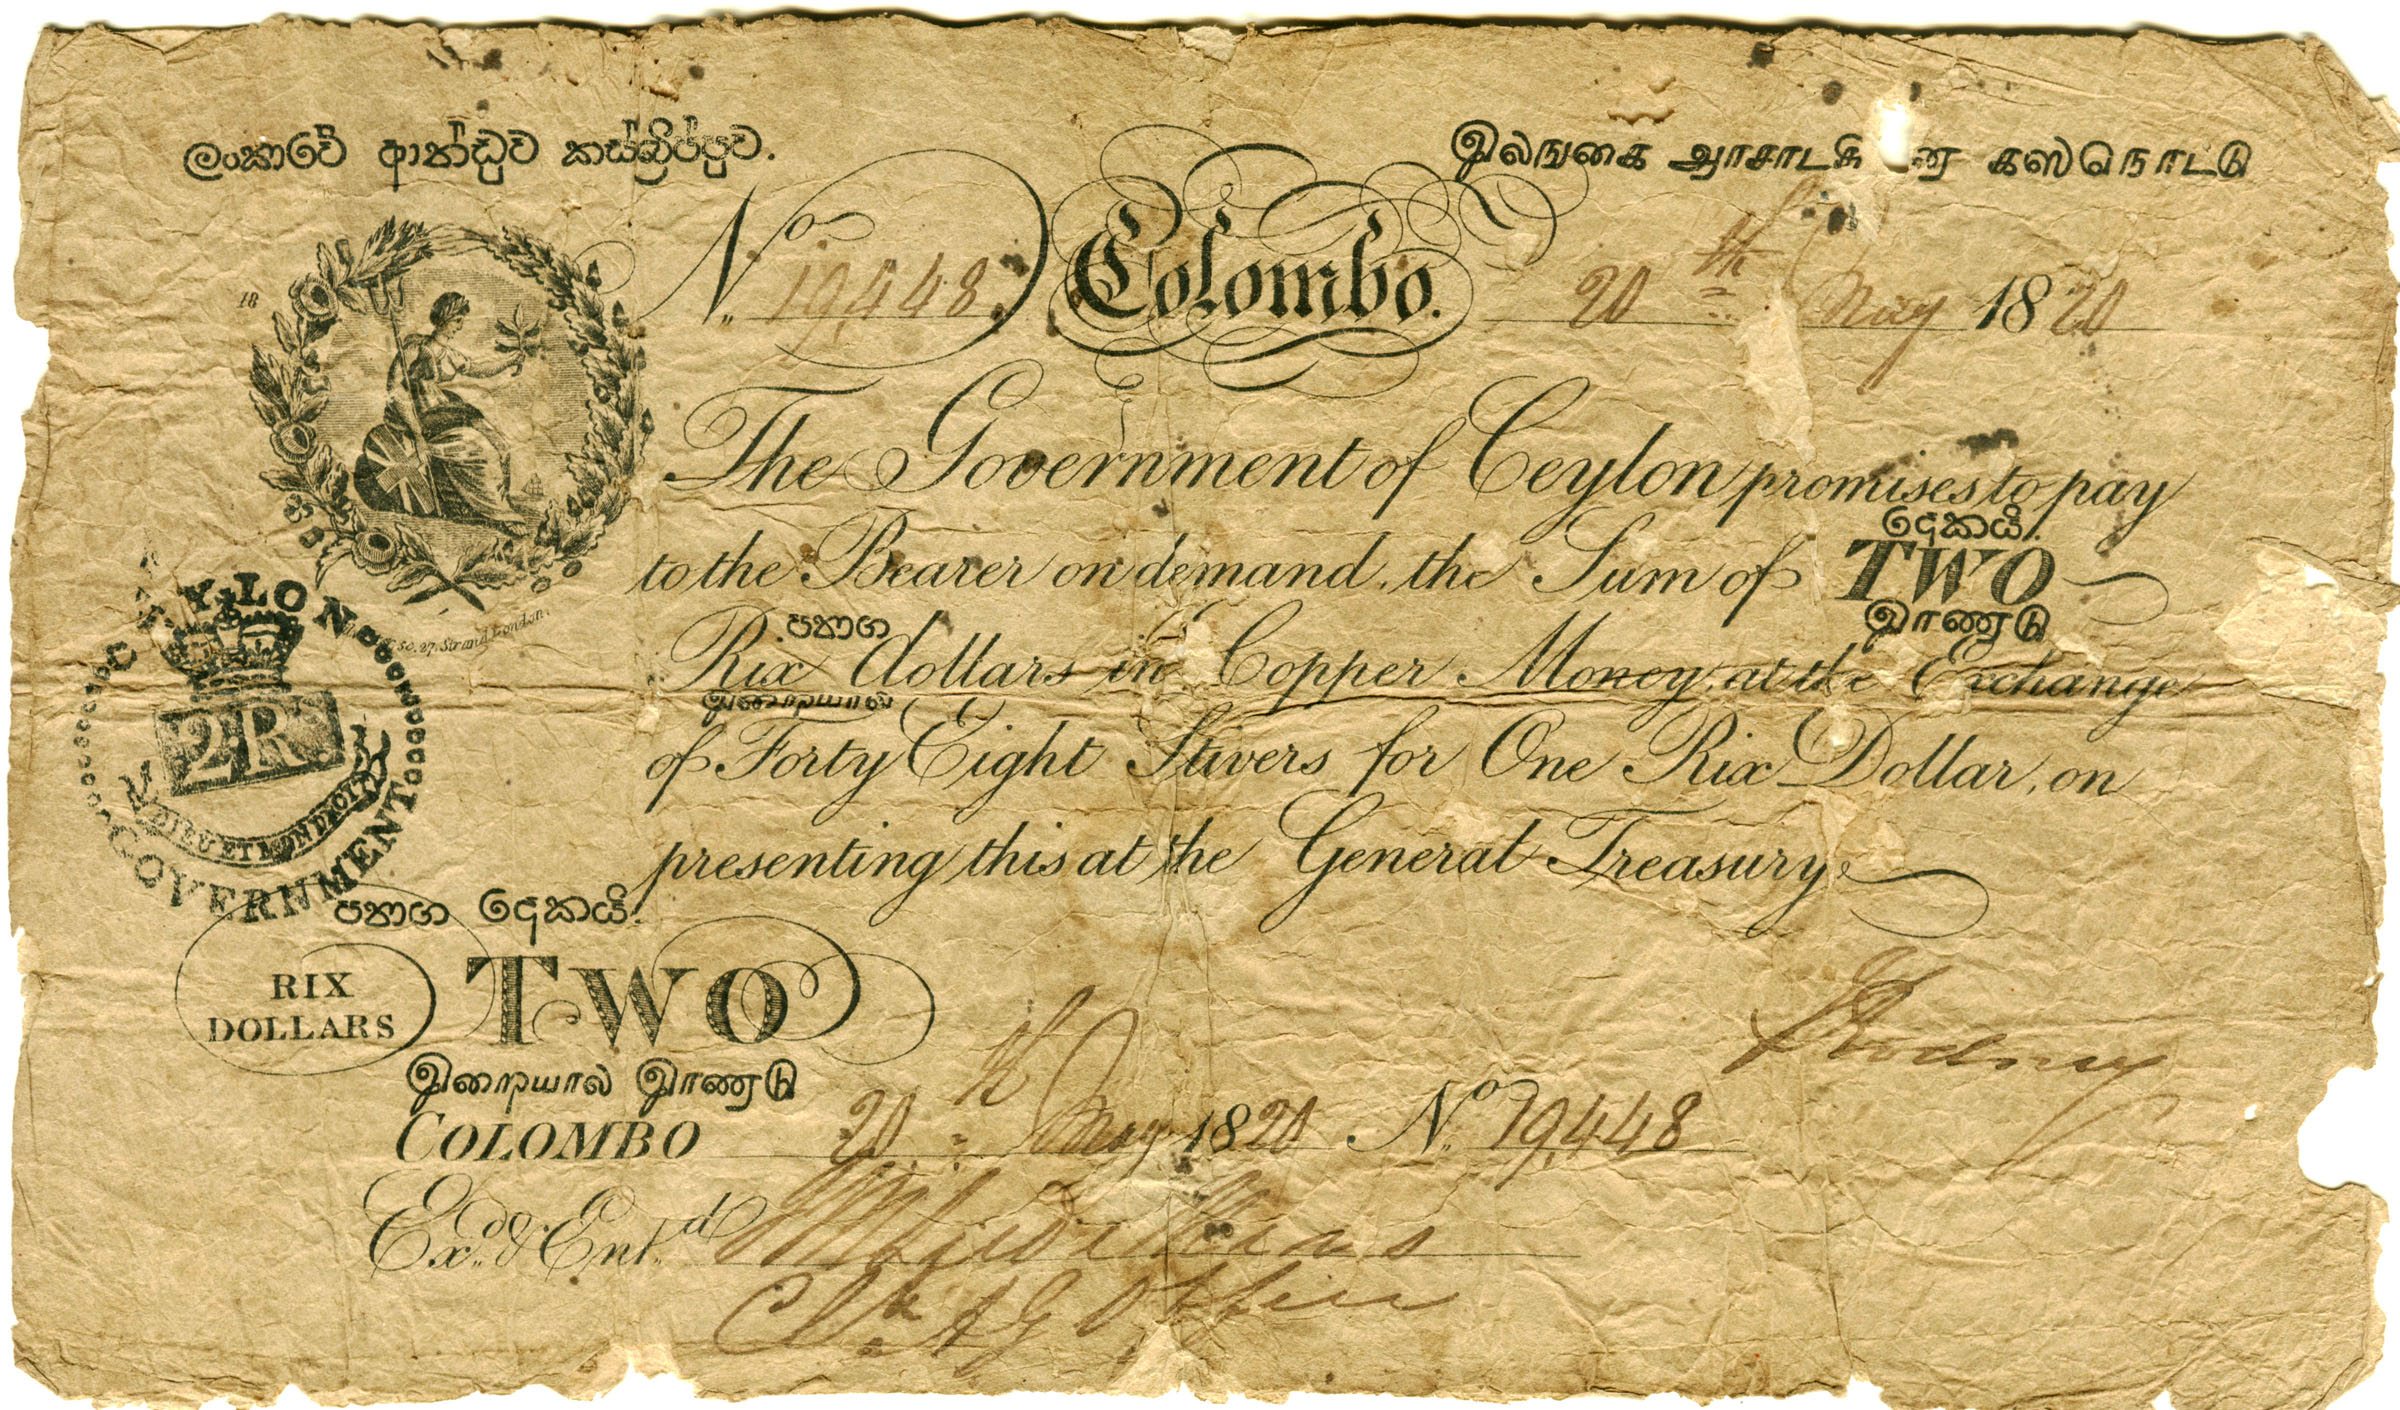 ලංකාවේ ආණ්ඩුව
இலங்கை
18
No. 19,448. Colombo. 20th May 1820
The Government of Ceylon promises to pay
දෙකයි.
to the Bearer on demand, the Sum of TWO
இரண்டு
පතාග
Rix dollars in Copper Money, at the Exchange
இறையால்
of Forty Eight Stivers for One Rix Dollar, on
presenting this at the General Treasury.
27, Strand London.
CEYLON
2 Rs.
DIEU ET MON DROIT
GOVERNMENT
පතාග දෙකයි.
RIX DOLLARS TWO
இறையால் இரண்டு
Rodney
COLOMBO 20th May 1820 No. 19,448
Exd. & Entd.
Clk A G Office